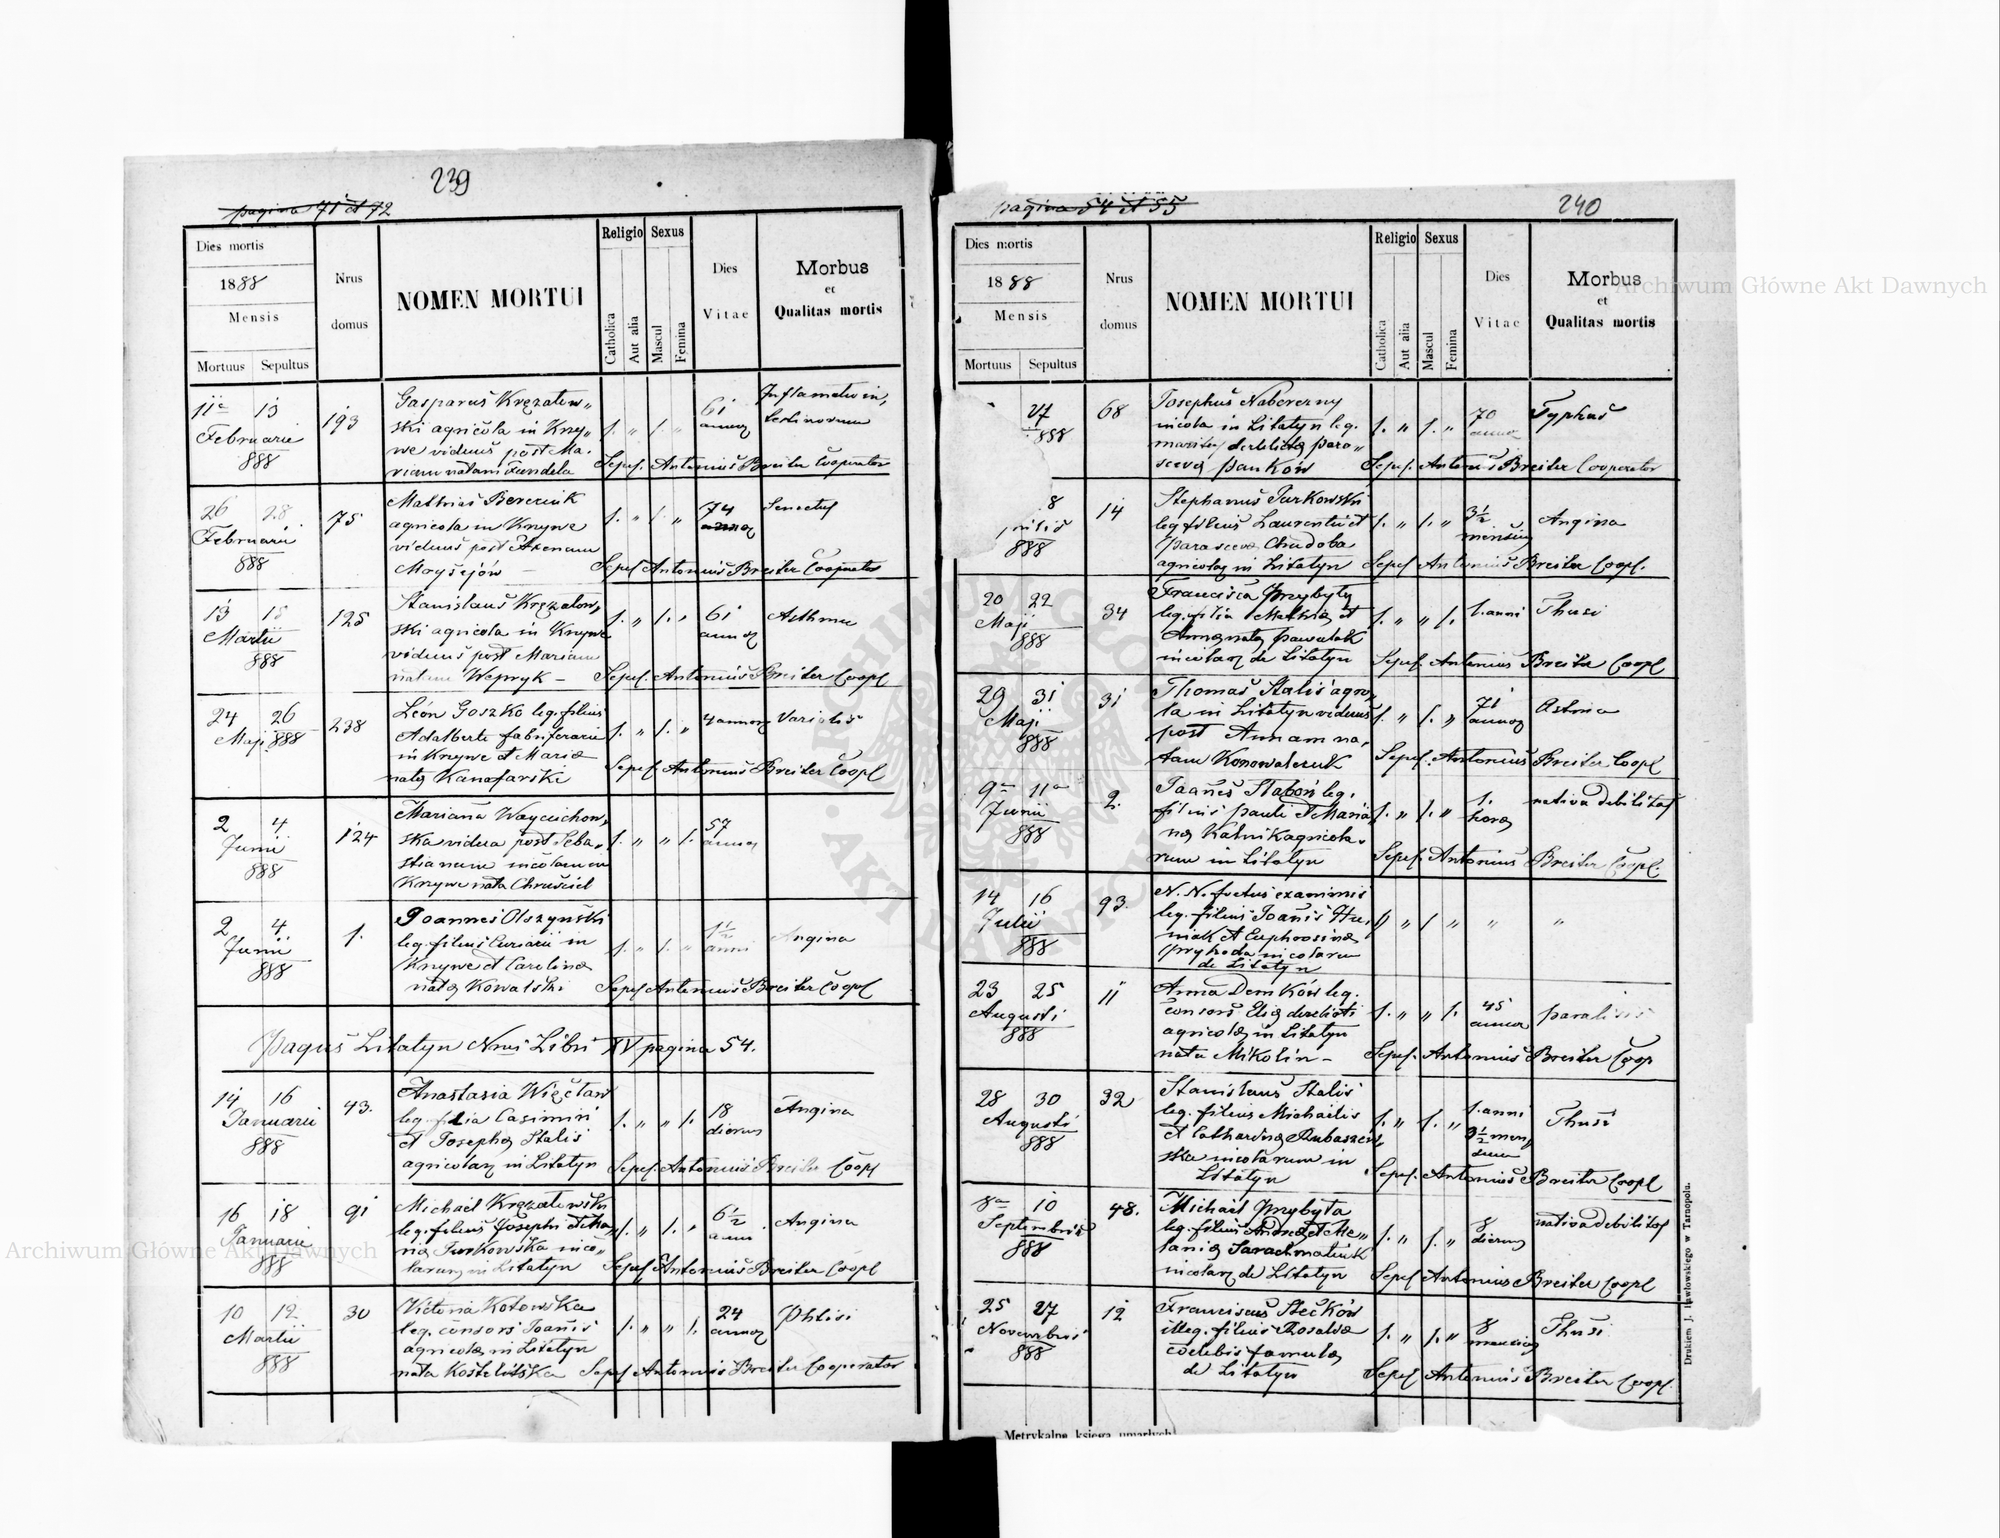 239
pagina 71 et 72
Dies mortis
1888
Mensis
Mortuus Sepultus
Nrus
domus
NOMEN MORTUI
Religio Sexus
Catholica
Aut alia
Mascul
Femina
Dies
Vitae
Morbus
et
Qualitas mortis
11a 13
Februarii
888
193
Gasparus Kręzalow„
ski agricola in Kny„
we viduus post Ma„
riam natam Fundela
1. „ 1. „
61
annor
Inflamatio in„
testinorum
Sepel. Antonius Breiter Cooperator
26 28
Februarii
888
75
Mathias Bereziuk
agricola in Knywe
viduus post
1. „ 1. „
74
annor
Senectus
Sepel Antonius Breiter Cooperator
13 15
Martii
888
125
Stanislaus Kręzalow„
ski agricola in Knywe
viduus post Mariam
natam Wepryk –
1. „ 1. „
61
annor
Asthma
Sepel. Antonius Breiter Coopl
24 26
Maji 888
238
Leon Goszko leg. filius
Adalberti fabri ferarii
in Knywe et Mariæ
natæ Kanafarski
1. „ 1. „
4 annor
Variolis
Sepel. Antonius Breiter Coopl
2 4
Junii
888
124
Mariana Woyciechow„
ska vidua post Seba„
stianum incolam in
Knywe nata Chruściel
1. „ „ 1.
57
annor
2 4
Junii
888
1.
Joannes Olszyński
leg. filius in
Knywe et Carolinæ
natæ Kowalski
1. „ 1. „
1½
anni
Angina
Sepel Antonius Breiter Coopl
Pagus Litatyn Nrus Libri XV pagina 54.
14 16
Januarii
888
43.
Anastasia Więcław
leg. filia Casimiri
et Josephæ Stalis
agricolar in Litatyn
1. „ „ 1.
18
dierum
Angina
Sepel. Antonius Breiter Coopl
16 18
Januarii
888
91
Michael Kręzalowski
leg. filius Josephi et Ma„
riæ Turkowska inco„
larum in Litatyn
1. „ 1. „
6½
ann
Angina
Sepel Antonius Breiter Coopl
10 12
Martii
888
30
Victoria Kotowska
leg. consors Joanis
agricolæ in Litatyn
nata
1. „ „ 1.
24
annor
Phtisi
Sepel Antonius Breiter Cooperator
pagina 54 et 55
240
Dies mortis
1888
Mensis
Mortuus Sepultus
Nrus
domus
NOMEN MORTUI
Religio Sexus
Catholica
Aut alia
Mascul
Femina
Dies
Vitae
Morbus
et
Qualitas mortis
27
888
68
Josephus Naberezny
incola in Litatyn leg.
maritus derelictæ Para„
scevæ Pańków
1. „ 1. „
70
annor
Typhus
Sepel. Antonius Breiter Cooperator
8
888
14
Stephanus Turkowski
leg. filius Laurentii et
Parascevæ Chudoba
agricolar in Litatyn
1. „ 1. „
3½
mensium
Angina
Sepel Antonius Breiter Coopl.
20 22
Maji
888
34
Francisca Przybyły
leg. filia Mathiæ et
Annæ natæ Pawalok
incolar de Litatyn
1. „ „ 1.
1. anni
Thusi
Sepel. Antonius Breiter Coopl
29 31
Maji
888
31
Thomas Stalis agrico„
la in Litatyn viduus
post Annam na„
tam Konowalczuk
1. „ 1. „
71
annor
Astma
Sepel. Antonius Breiter Coopl
9a 11a
Junii
888
2.
Joanes Slaboń leg.
filius Pauli et Maria„
næ Katnik agricola„
rum in Litatyn
1. „ 1. „
1.
hora
nativa debilitas
Sepel Antonius Breiter Coopl.
14 16
Julii
888
93.
N. N. foetus exanimis
leg. filius Joanis Hu„
niak et Euphrosinæ
Pryhoda incolarum
de Litatyn
1 „ 1 „ „ „
23 25
Augusti
888
11
Anna Demków leg.
consors Eliæ derelicti
agricolæ in Litatyn
nata Mikolin –
1. „ „ 1.
45
annor
paralisis
Sepel. Antonius Breiter Coop
28 30
Augusti
888
32
Stanislaus Stalis
leg. filius Michaelis
et Catharinæ Rubaszew„
ska incolarum in
Litatyn
1. „ 1. „
1. anni
9½ men„
sium
Thusi
Sepel Antonius Breiter Coopl
8a 10
Septembris
888
48.
Michael Przybyła
leg. filius Andreæ et Me„
laniæ
incolar de Litatyn
1. „ 1. „
8
dierum
nativa debilitas
Sepel Antonius Breiter Coopl
25 27
Novembris
888
12
Franciscus Stećków
illeg. filius Rosaliæ
coelebis famulæ
de Litatyn
1. „ 1. „
8
mensium
Thusi
Sepel Antonius Breiter Coopl.
Drukiem J. Pawłowskiego w Tarnopolu.
Metrykalne księga umarłych
Archiwum Główne Akt Dawnych
Archiwum Główne Akt Dawnych
ARCHIWUM GŁÓWNE
AKT DAWNYCH